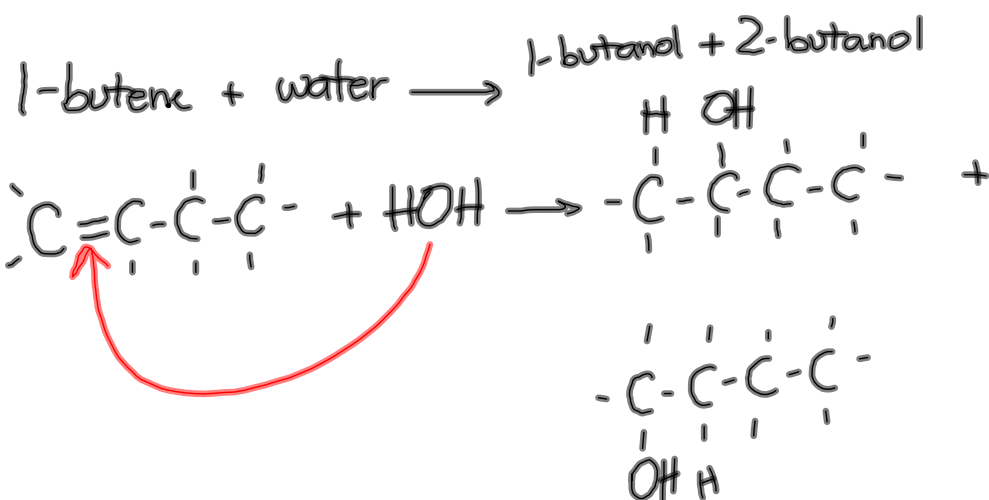 1-butene + water → 1-butanol + 2-butanol
H OH
C=C-C-C- + HOH → -C-C-C-C- +
-C-C-C-C-
OH H